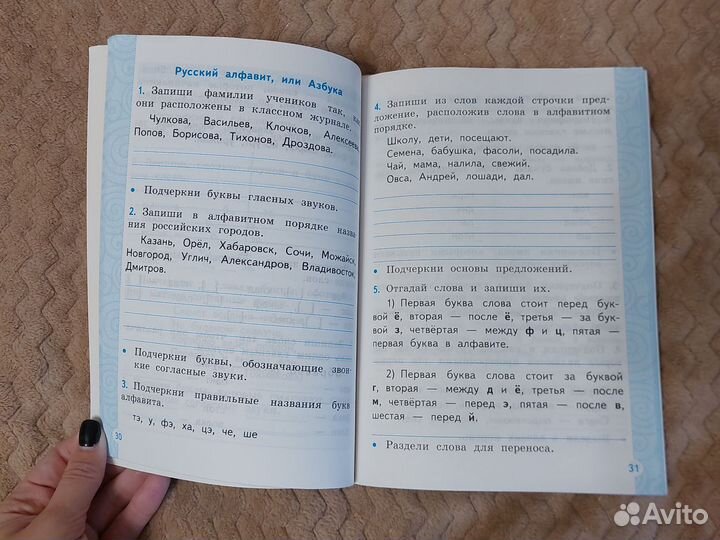 Русский алфавит, или Азбука
1. Запиши фамилии учеников так, как
они расположены в классном журнале.
Чулкова, Васильев, Клочков, Алексеева,
Попов, Борисова, Тихонов, Дроздова.
• Подчеркни буквы гласных звуков.
2. Запиши в алфавитном порядке назва-
ния российских городов.
Казань, Орёл, Хабаровск, Сочи, Можайск,
Новгород, Углич, Александров, Владивосток,
Дмитров.
• Подчеркни буквы, обозначающие звон-
кие согласные звуки.
3. Подчеркни правильные названия букв
алфавита.
тэ, у, фэ, ха, цэ, че, ше
30
4. Запиши из слов каждой строчки пред-
ложение, расположив слова в алфавитном
порядке.
Школу, дети, посещают.
Семена, бабушка, фасоли, посадила.
Чай, мама, налила, свежий.
Овса, Андрей, лошади, дал.
• Подчеркни основы предложений.
5. Отгадай слова и запиши их.
1) Первая буква слова стоит перед бук-
вой ё, вторая — после ё, третья — за бук-
вой з, четвёртая — между ф и ц, пятая —
первая буква в алфавите.
2) Первая буква слова стоит за буквой
г, вторая — между д и ё, третья — после
м, четвёртая — перед э, пятая — после в,
шестая — перед й.
• Раздели слова для переноса.
31
Avito